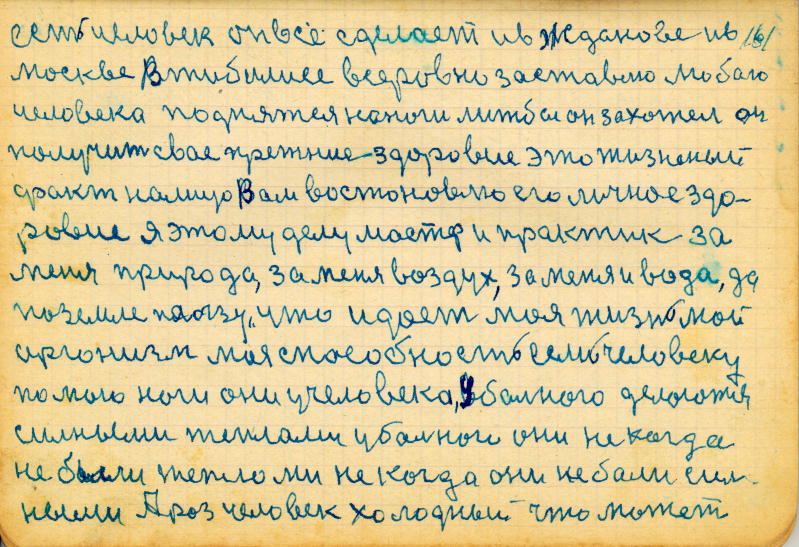 семь человек он все сделает и в Жданове и в 161
москве В тибилисе всеровно заставлю любаго
человека поднятся на ноги лижбы он захотел он
получит свае прежние здоровие это жизненый
факт на лицо Вам востоновлю его личное здо-
ровие я этому делу мастер и практик за
меня природа, за меня воздух, за меня и вода, да
по земле ползу, что идает моя жизнь мой
организм моя способность семь человеку
помаго ноги они у человека, у балного делаются
силными теплами у балного они некогда
не были тепломи некогда они не бали сил-
ными А роз человек холодный что может